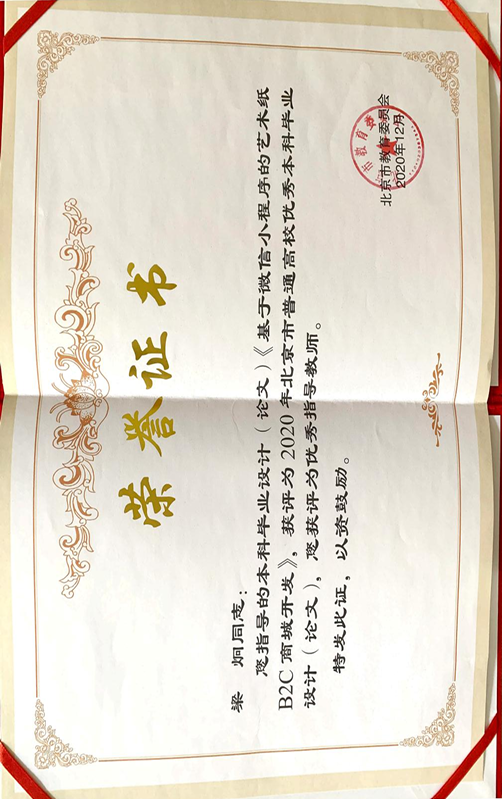 荣誉证书
梁炯同志：
您指导的本科毕业设计（论文）《基于微信小程序的艺术纸
B2C商城开发》，获评为2020年北京市普通高校优秀本科毕业
设计（论文），您获评为优秀指导教师。
特发此证，以资鼓励。
北京市教育委员会
2020年12月